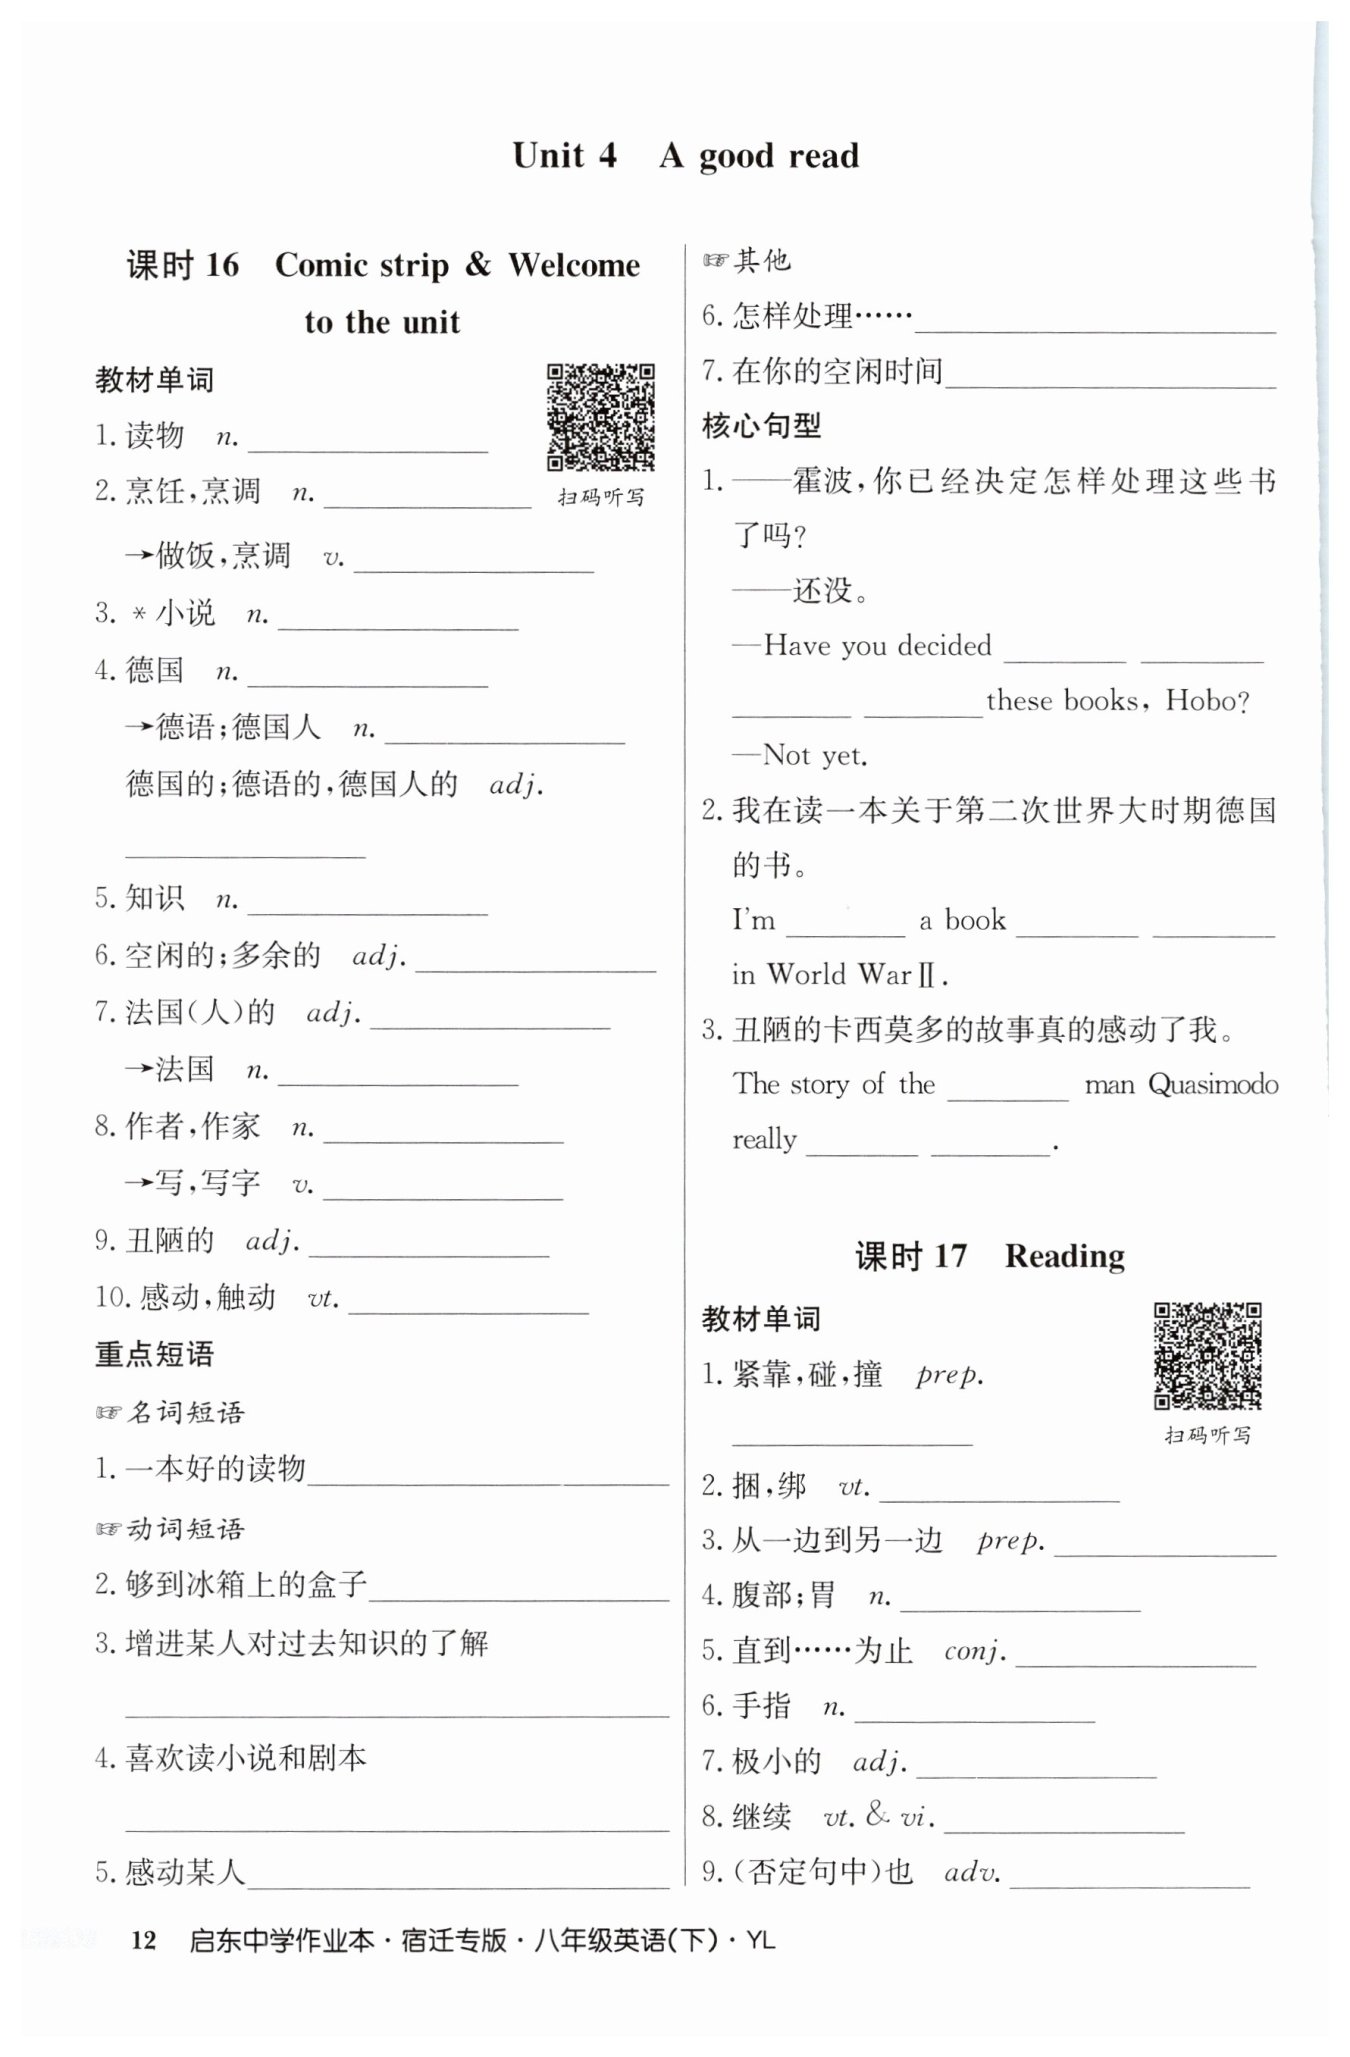 Unit 4 A good read
课时 16 Comic strip & Welcome
to the unit
教材单词
1. 读物 n. ____
扫码听写
2. 烹饪,烹调 n. ____
→做饭,烹调 v. ____
3. *小说 n. ____
4. 德国 n. ____
→德语;德国人 n. ____
德国的;德语的,德国人的 adj.
____
5. 知识 n. ____
6. 空闲的;多余的 adj. ____
7. 法国(人)的 adj. ____
→法国 n. ____
8. 作者,作家 n. ____
→写,写字 v. ____
9. 丑陋的 adj. ____
10. 感动,触动 vt. ____
重点短语
☞名词短语
1. 一本好的读物____
☞动词短语
2. 够到冰箱上的盒子____
3. 增进某人对过去知识的了解
____
4. 喜欢读小说和剧本
____
5. 感动某人____
☞其他
6. 怎样处理……____
7. 在你的空闲时间____
核心句型
1. ——霍波,你已经决定怎样处理这些书
了吗?
——还没。
—Have you decided ____ ____
____ ____these books, Hobo?
—Not yet.
2. 我在读一本关于第二次世界大时期德国
的书。
I'm ____ a book ____ ____
in World WarⅡ.
3. 丑陋的卡西莫多的故事真的感动了我。
The story of the ____ man Quasimodo
really ____ ____.
课时 17 Reading
教材单词
1. 紧靠,碰,撞 prep.
____
扫码听写
2. 捆,绑 vt. ____
3. 从一边到另一边 prep. ____
4. 腹部;胃 n. ____
5. 直到……为止 conj. ____
6. 手指 n. ____
7. 极小的 adj. ____
8. 继续 vt. & vi. ____
9. (否定句中)也 adv. ____
12 启东中学作业本·宿迁专版·八年级英语(下)·YL